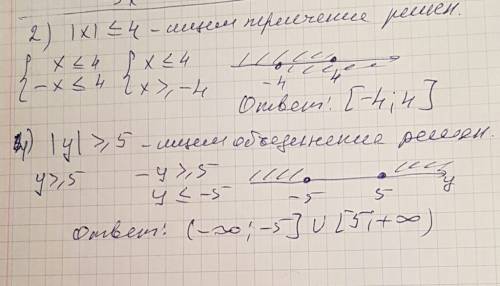 2) |x| ≤ 4 - ищем пересечение решен.
{ x ≤ 4 { x ≤ 4
{ -x ≤ 4 { x ≥ -4
-4 4
Ответ: [-4; 4]
4) |y| ≥ 5 - ищем объединение решен.
y ≥ 5 -y ≥ 5
y ≤ -5
-5 5 y
Ответ: (-∞; -5] ∪ [5; +∞)